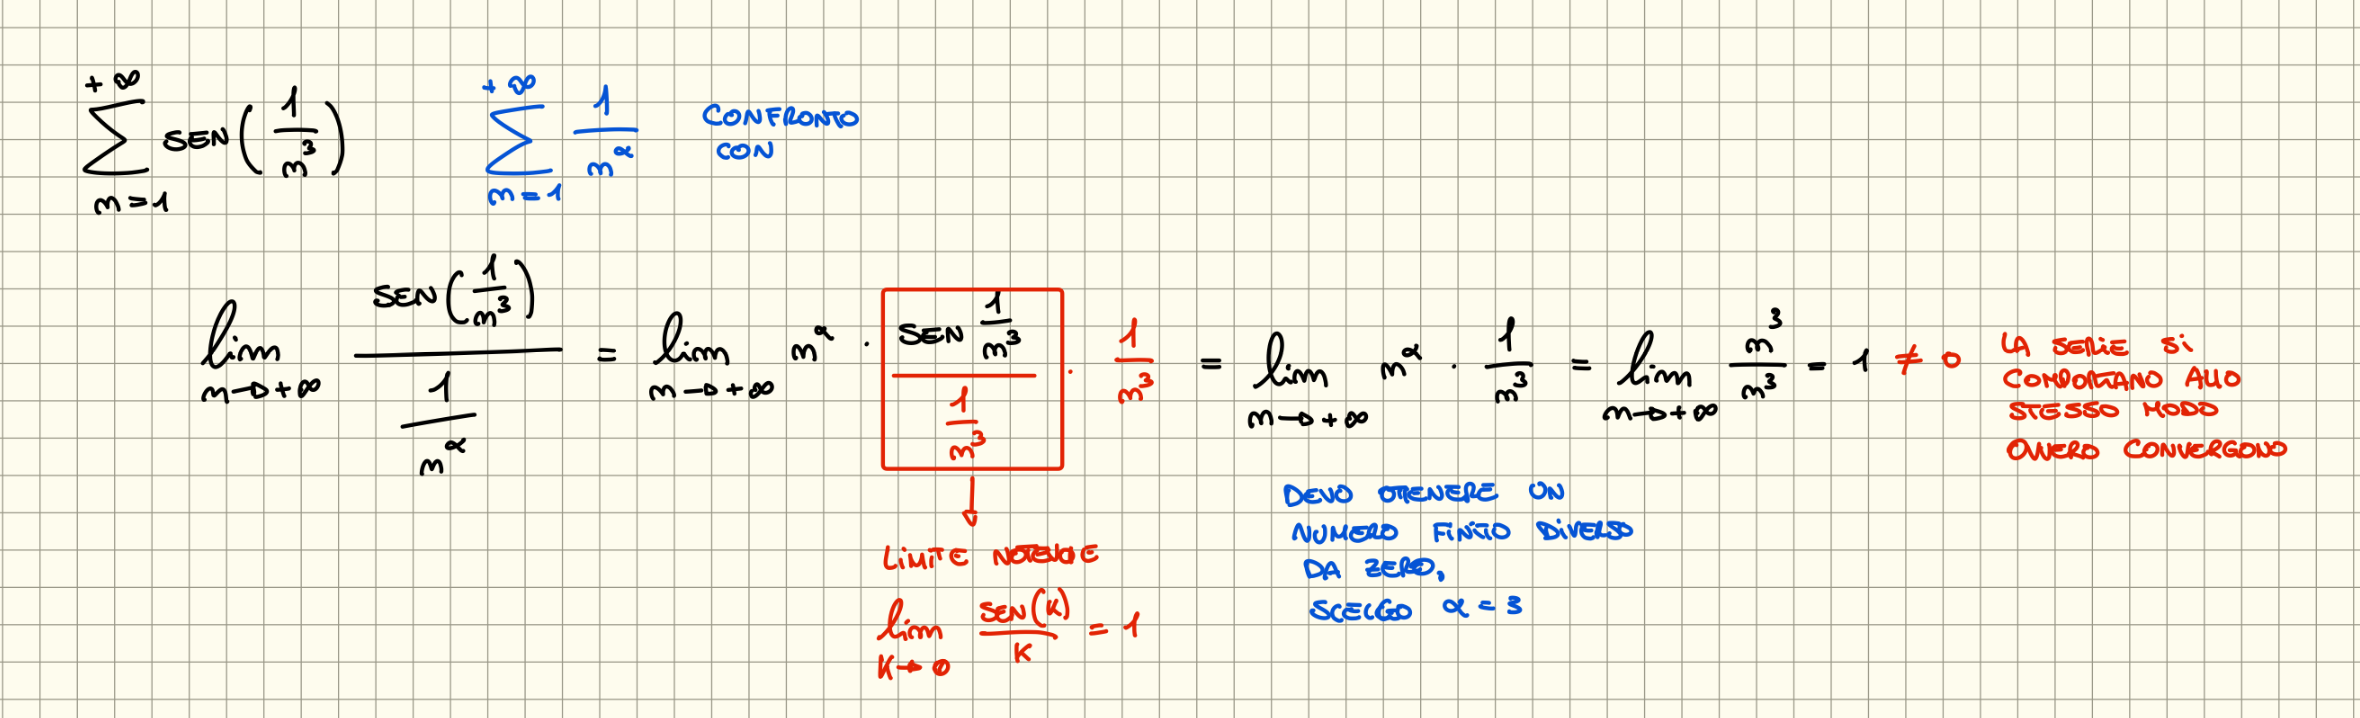 +∞ ∑ m=1 SEN(1/m³) +∞ ∑ m=1 1/m^α CONFRONTO
CON
lim m→+∞ SEN(1/m³) / (1/m^α) = lim m→+∞ m^α · (SEN 1/m³) / (1/m³) · 1/m³ = lim m→+∞ m^α · 1/m³ = lim m→+∞ m³/m³ = 1 ≠ 0
LA SERIE SI
COMPORTANO ALLO
STESSO MODO
OVVERO CONVERGONO
LIMITE NOTEVOLE
lim K→0 SEN(K)/K = 1
DEVO OTTENERE UN
NUMERO FINITO DIVERSO
DA ZERO,
SCELGO α = 3